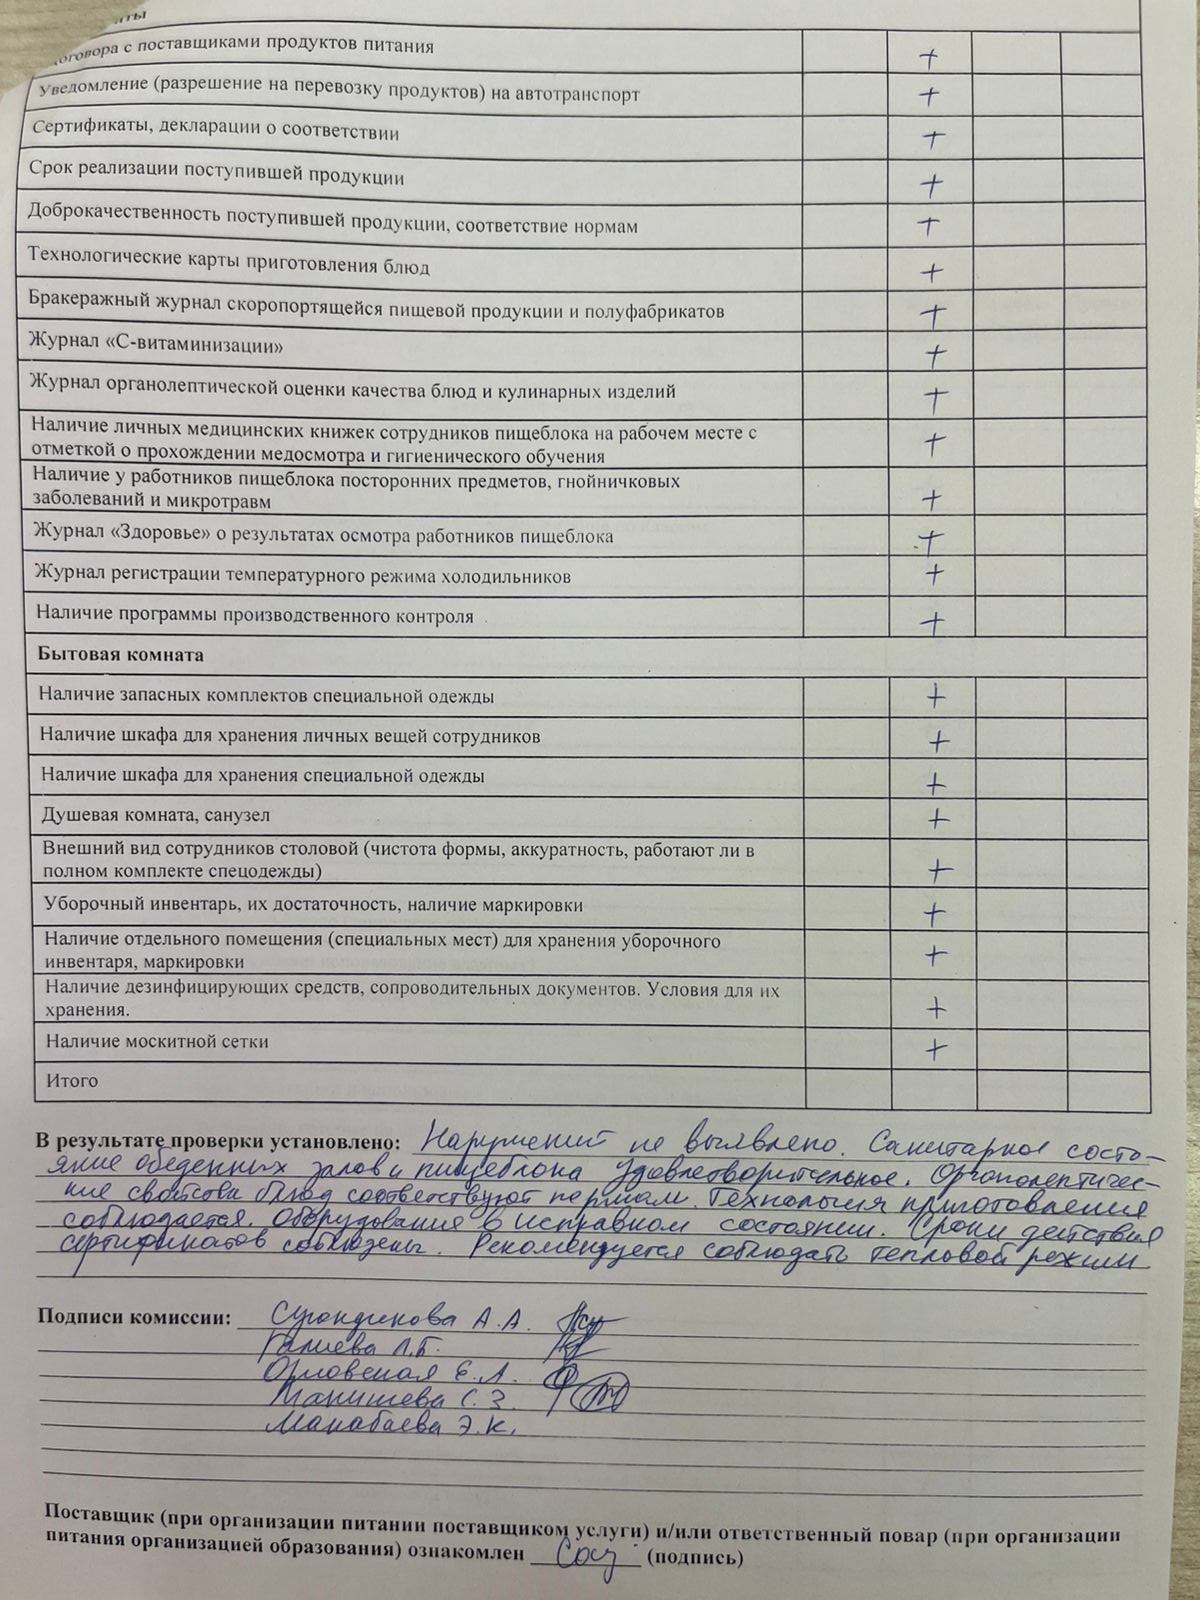 нты
договора с поставщиками продуктов питания +
Уведомление (разрешение на перевозку продуктов) на автотранспорт +
Сертификаты, декларации о соответствии +
Срок реализации поступившей продукции +
Доброкачественность поступившей продукции, соответствие нормам +
Технологические карты приготовления блюд +
Бракеражный журнал скоропортящейся пищевой продукции и полуфабрикатов +
Журнал «С-витаминизации» +
Журнал органолептической оценки качества блюд и кулинарных изделий +
Наличие личных медицинских книжек сотрудников пищеблока на рабочем месте с
отметкой о прохождении медосмотра и гигиенического обучения +
Наличие у работников пищеблока посторонних предметов, гнойничковых
заболеваний и микротравм +
Журнал «Здоровье» о результатах осмотра работников пищеблока +
Журнал регистрации температурного режима холодильников +
Наличие программы производственного контроля +
Бытовая комната
Наличие запасных комплектов специальной одежды +
Наличие шкафа для хранения личных вещей сотрудников +
Наличие шкафа для хранения специальной одежды +
Душевая комната, санузел +
Внешний вид сотрудников столовой (чистота формы, аккуратность, работают ли в
полном комплекте спецодежды) +
Уборочный инвентарь, их достаточность, наличие маркировки +
Наличие отдельного помещения (специальных мест) для хранения уборочного
инвентаря, маркировки +
Наличие дезинфицирующих средств, сопроводительных документов. Условия для их
хранения. +
Наличие москитной сетки +
Итого
В результате проверки установлено: Нарушений не выявлено. Санитарное состо-
яние обеденных залов и пищеблока удовлетворительное. Органолептичес-
кие свойства блюд соответствуют нормам. Технология приготовления
соблюдается. Оборудование в исправном состоянии. Сроки действия
сертификатов соблюдены. Рекомендуется соблюдать тепловой режим
Подписи комиссии: А.А.
Галиева Л.Б.
Орловская Е.А.
С.З.
Манабаева Э.К.
Поставщик (при организации питании поставщиком услуги) и/или ответственный повар (при организации
питания организацией образования) ознакомлен (подпись)